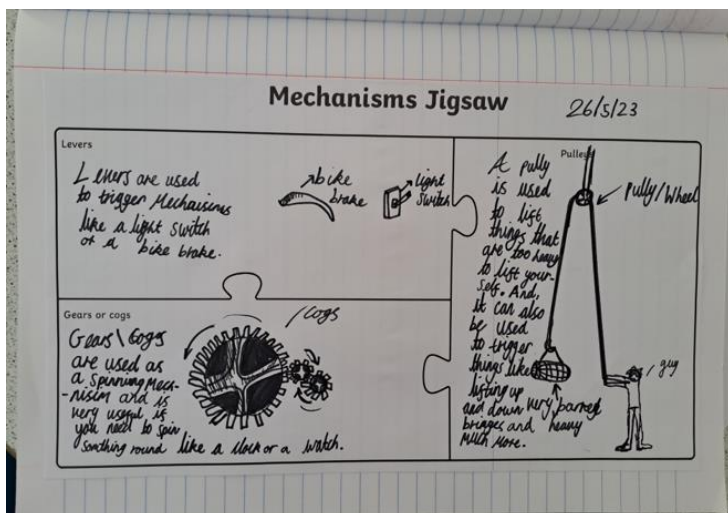 Mechanisms Jigsaw
26/5/23
Levers
Levers are used
to trigger Mechaisims
like a light switch
or a bike brake.
bike
brake
light
switch
Gears or cogs
Gears\Coggs
are used as
a spinning Mech-
-nisim and is
very useful if
you need to spin
somthing round like a clock or a watch.
/cogs
Pulleys
A pully
is used
to lift
things that
are too heavy
to lift your-
self. And,
it can also
be used
to trigger
things like
lifting up
and down
brigges and
much more.
Pully/Wheel
guy
very
heavy